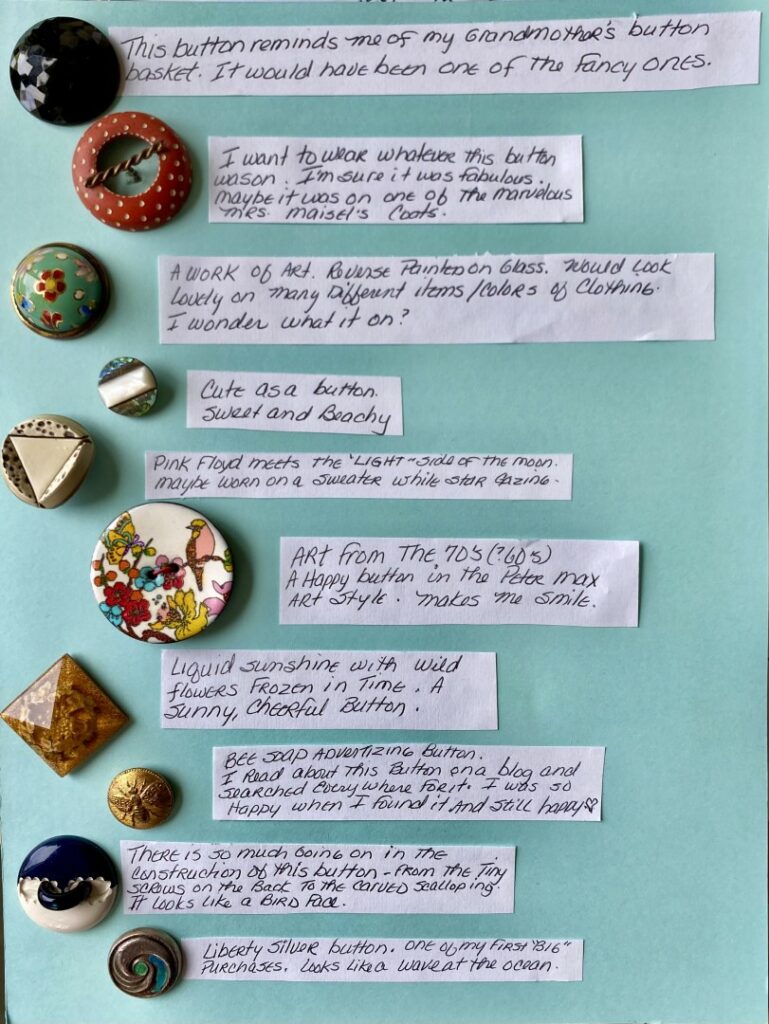 This button reminds me of my Grandmother's button
basket. It would have been one of the fancy ones.
I want to wear whatever this button
was on. I'm sure it was fabulous.
Maybe it was on one of the marvelous
Mrs. Maisel's Coats.
A WORK OF ART. Reverse Painted on Glass. Would Look
Lovely on Many Different items/colors of Clothing.
I wonder what it on?
Cute as a button.
Sweet and Beachy
Pink Floyd meets the "LIGHT" side of the moon.
Maybe worn on a sweater while star gazing.
ART from The 70's (?60's)
A Happy button in the Peter Max
ART Style. Makes me smile.
Liquid sunshine with wild
flowers Frozen in Time. A
Sunny, Cheerful Button.
BEE SOAP ADVERTIZING Button.
I Read about This Button on a blog and
searched Everywhere for it. I was so
Happy when I found it And still happy♡
THERE is so much Going on in the
construction of this button - From the Tiny
screws on the Back To the carved scalloping.
It looks like a BIRD Face.
Liberty Silver button. One of my first "BIG"
Purchases. Looks like a wave at the ocean.